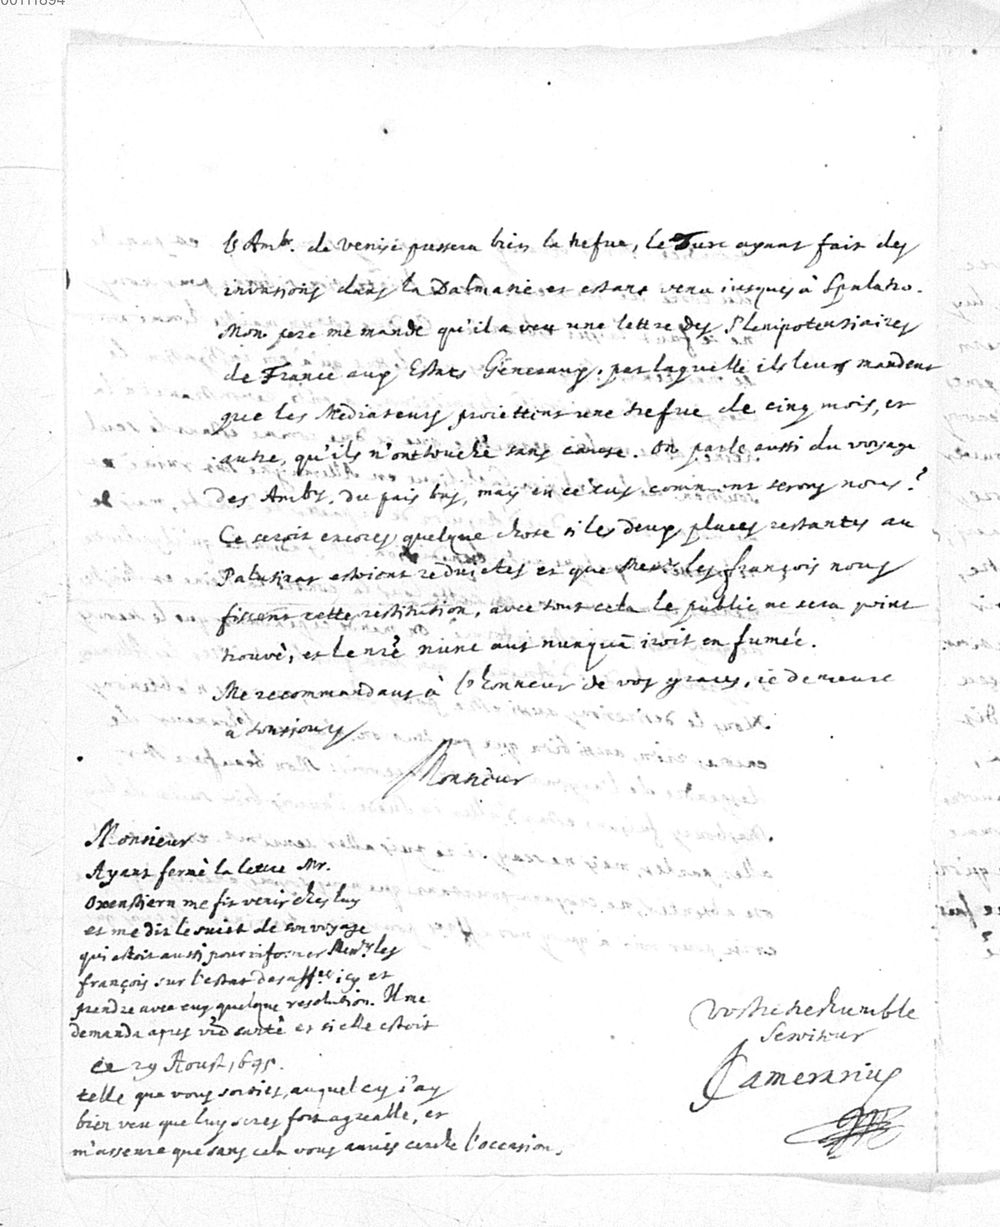 00111894
l'Amb.r de Venise pressera bien la trefue, le Turc ayant fait des
invasions dans la Dalmatie et estant venu iusques à Spalatro.
Mon pere me mande qu'il a veu une lettre des Plenipotentiaires
de France aux Estats Generaux, par laquelle ils leurs mandent
que les Mediateurs proiettent une trefue de cinq mois, et
autre, qu'ils n'ont touché sans cause. On parle aussi du voyage
des Ambr. du pais bas, mais en ce cas comment serons nous?
Ce seroit encores quelque chose si les deux places restantes au
Palatinat estoient reduictes et que Mess.rs les françois nous
fissent cette restitution, avec tout cela le public ne sera point
trouvé, et le nre nunc aut nunquā iroit en fumée.
Me recommandant à l'honneur de vos graces, ie demeure
à tousiours
Monsieur
Monsieur
Ayant fermé la lettre Mr.
Oxenstiern me fit venir chez luy
et me dit le suiet de son voyage
qui estoit aussi pour informer Mess.rs les
françois sur l'estat des aff.res icy et
prendre avec eux quelque resolution. Il me
demanda apres vre santé et si elle estoit
ce 29 Aoust, 1645.
telle que vous sortiés, auquel cas i'ay
bien veu que luy seres fort agreable, et
m'asseure que sans cela vous auriés cerché l'occasion.
Vostre treshumble
Serviteur
Camerarius